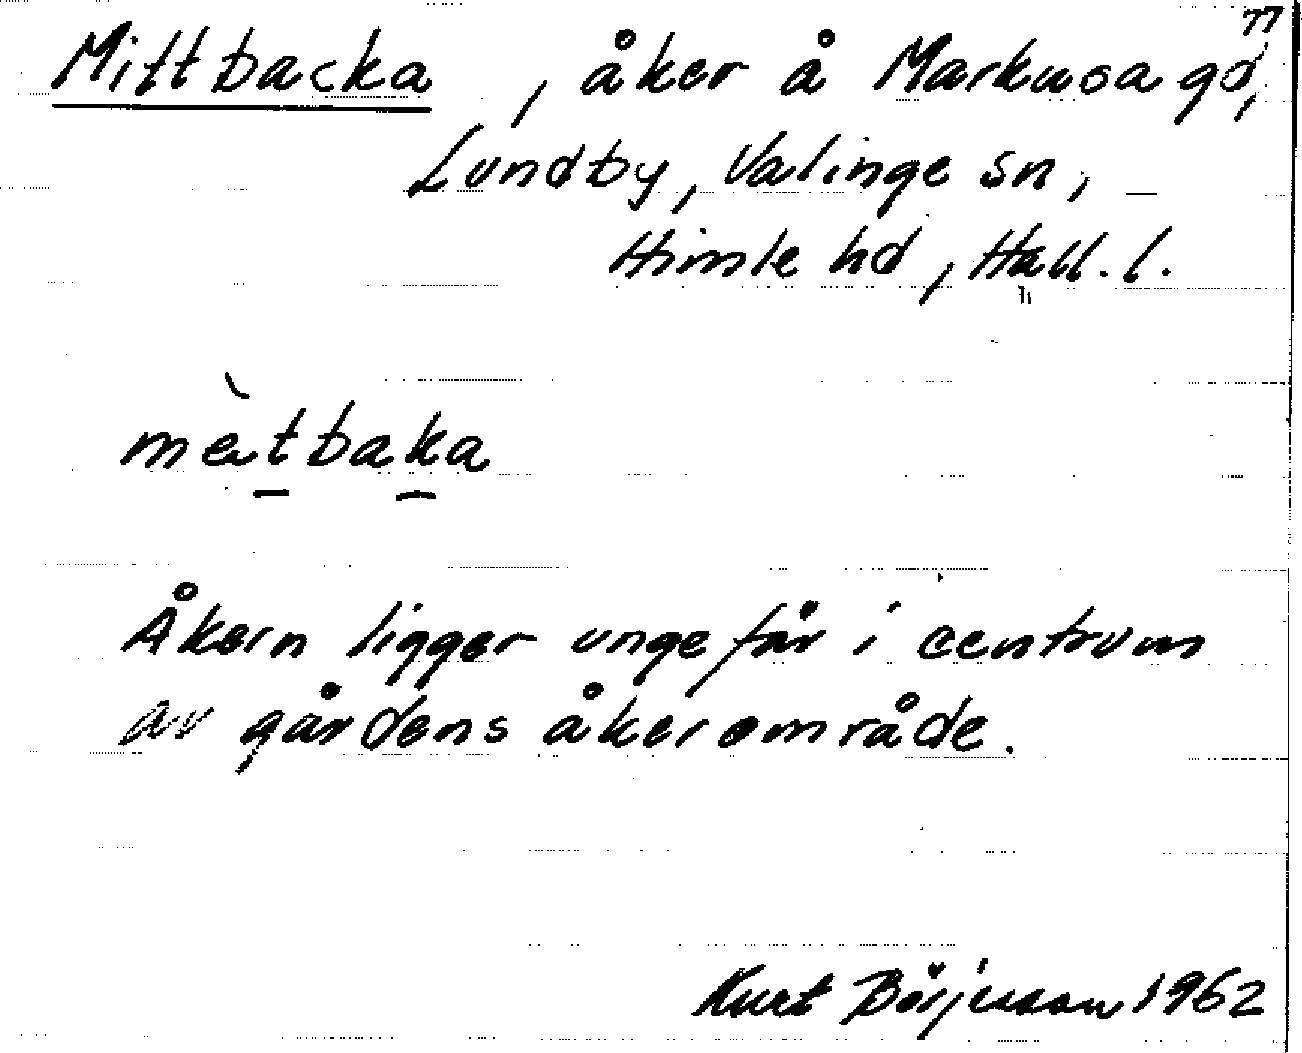 77
Mittbacka, åker å Markusa gd,
Lundby, Valinge sn,
Himle hd, Hall. l.
mètbaka
Åkern ligger ungefär i centrum
av gårdens åkerområde.
Kurt Börjesson 1962